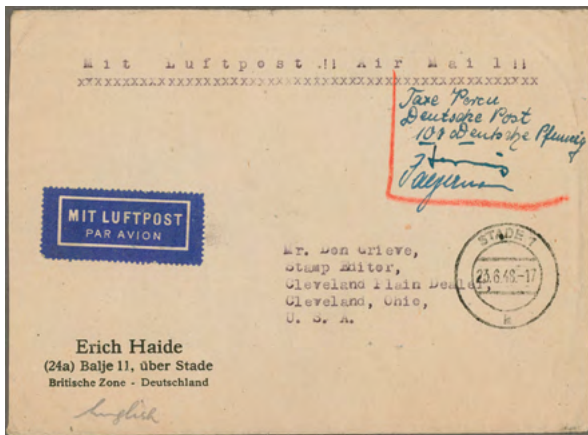 Mit Luftpost !! Air Mail !!
xxxxxxxxxxxxxxxxxxxxxxxxxxxxxxxxxxxxxxxxxxxxxxxxxxxxxx
Taxe Percu
Deutsche Post
100 Deutsche Pfennig
MIT LUFTPOST
PAR AVION
STADE 1
23.6.48.-17
k
Mr. Don Grieve,
Stamp Editor,
Cleveland Plain Dealer,
Cleveland, Ohio,
U. S. A.
Erich Haide
(24a) Balje 11, über Stade
Britische Zone - Deutschland
English